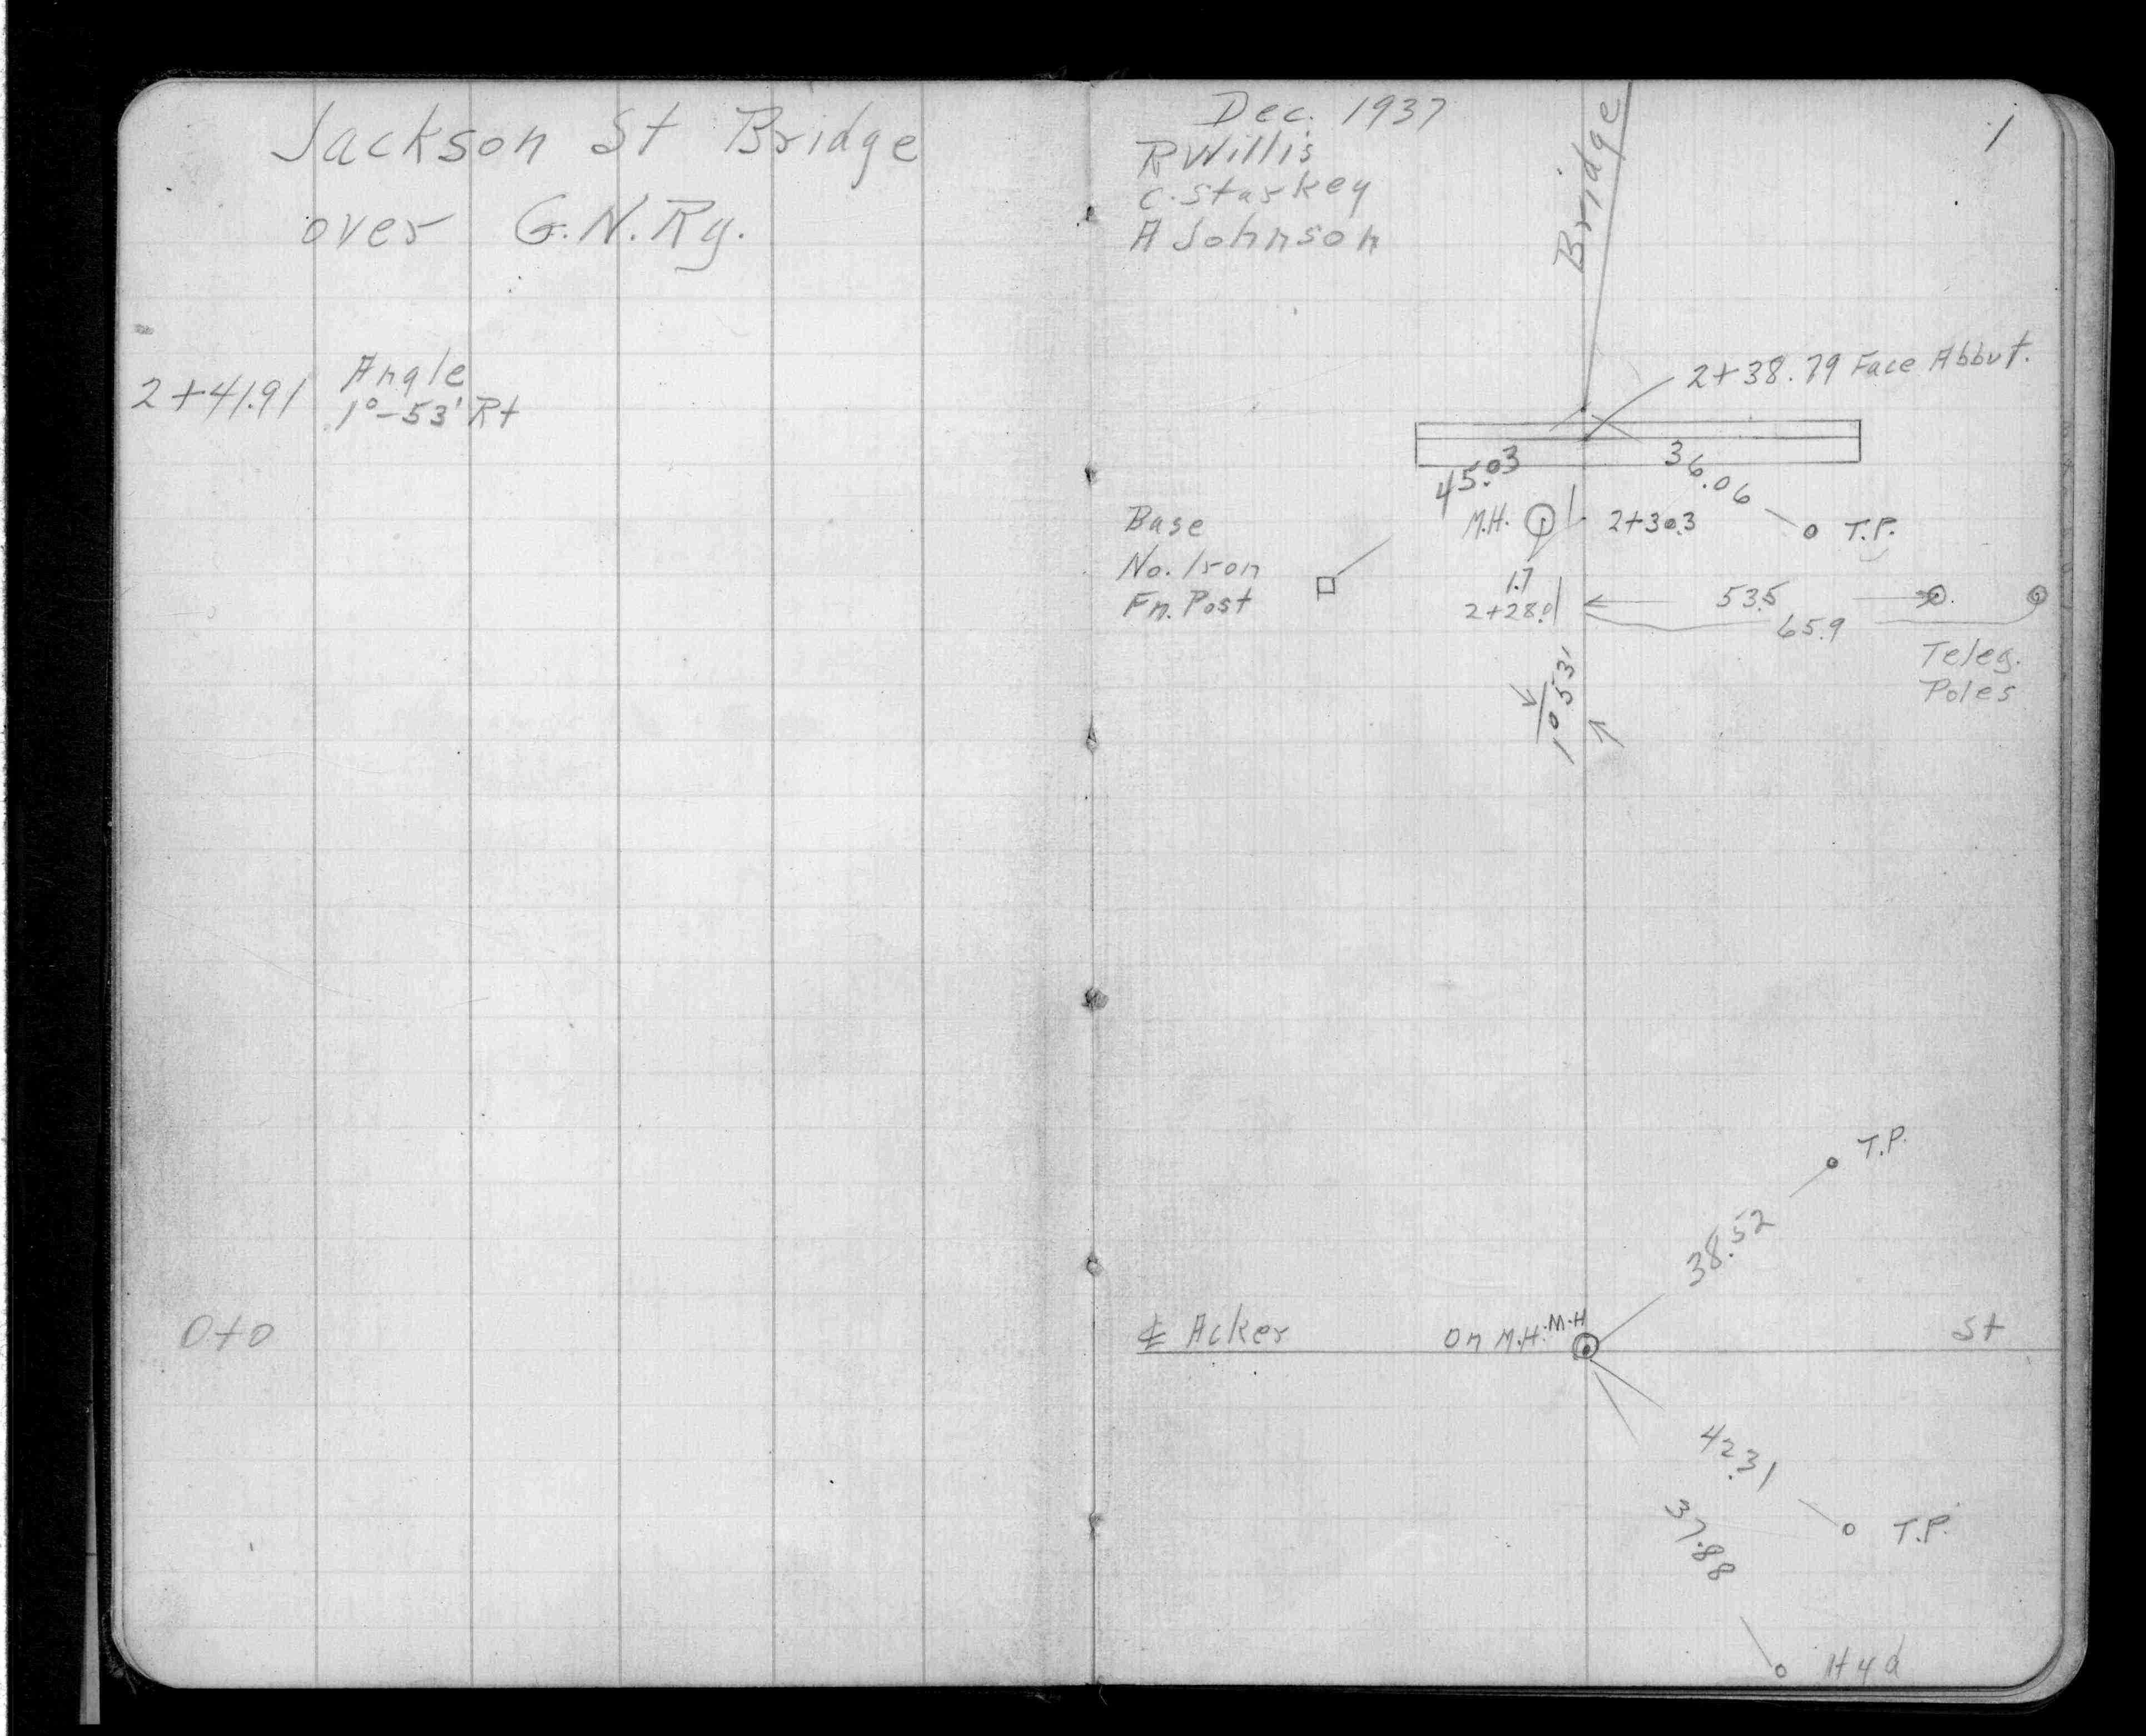 Jackson St Bridge
over G.N.Ry.
2+41.91 Angle
1°-53' Rt
0+0
1
Dec. 1937
R Willis
C. Starkey
A Johnson
Bridge
2+38.79 Face Abbut.
45.03
36.06
Base
No. Iron
Fn. Post
M.H.
2+30.3
T.P.
1.7
2+28.0
53.5
65.9
Teleg.
Poles
1°53'
T.P.
38.52
℄ Acker
On M.H.
M.H
St
42.31
T.P.
37.88
Hyd